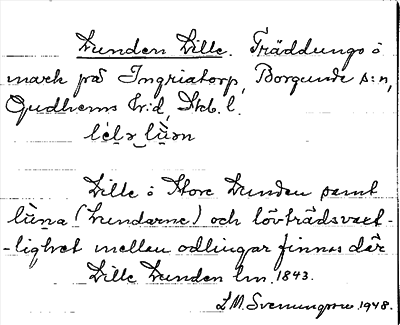 Lunden Lille. Träddunge å
mark på Ingriatorp, Borgunda s:n,
Gudhems hr:d, Skb. l.
Lille o Store Lunden samt
lùna (Lundarne) och lövträdsväxt-
-lighet mellan odlingar finnes där
Lille Lunden lm. 1843.
1948.